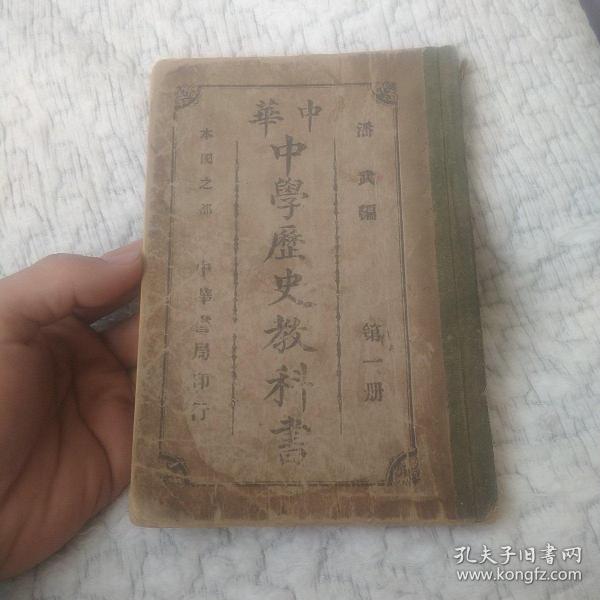 潘武編
第一册
中華
中學歷史教科書
本國之部
中華書局印行
孔夫子旧书网
www.kongfz.com